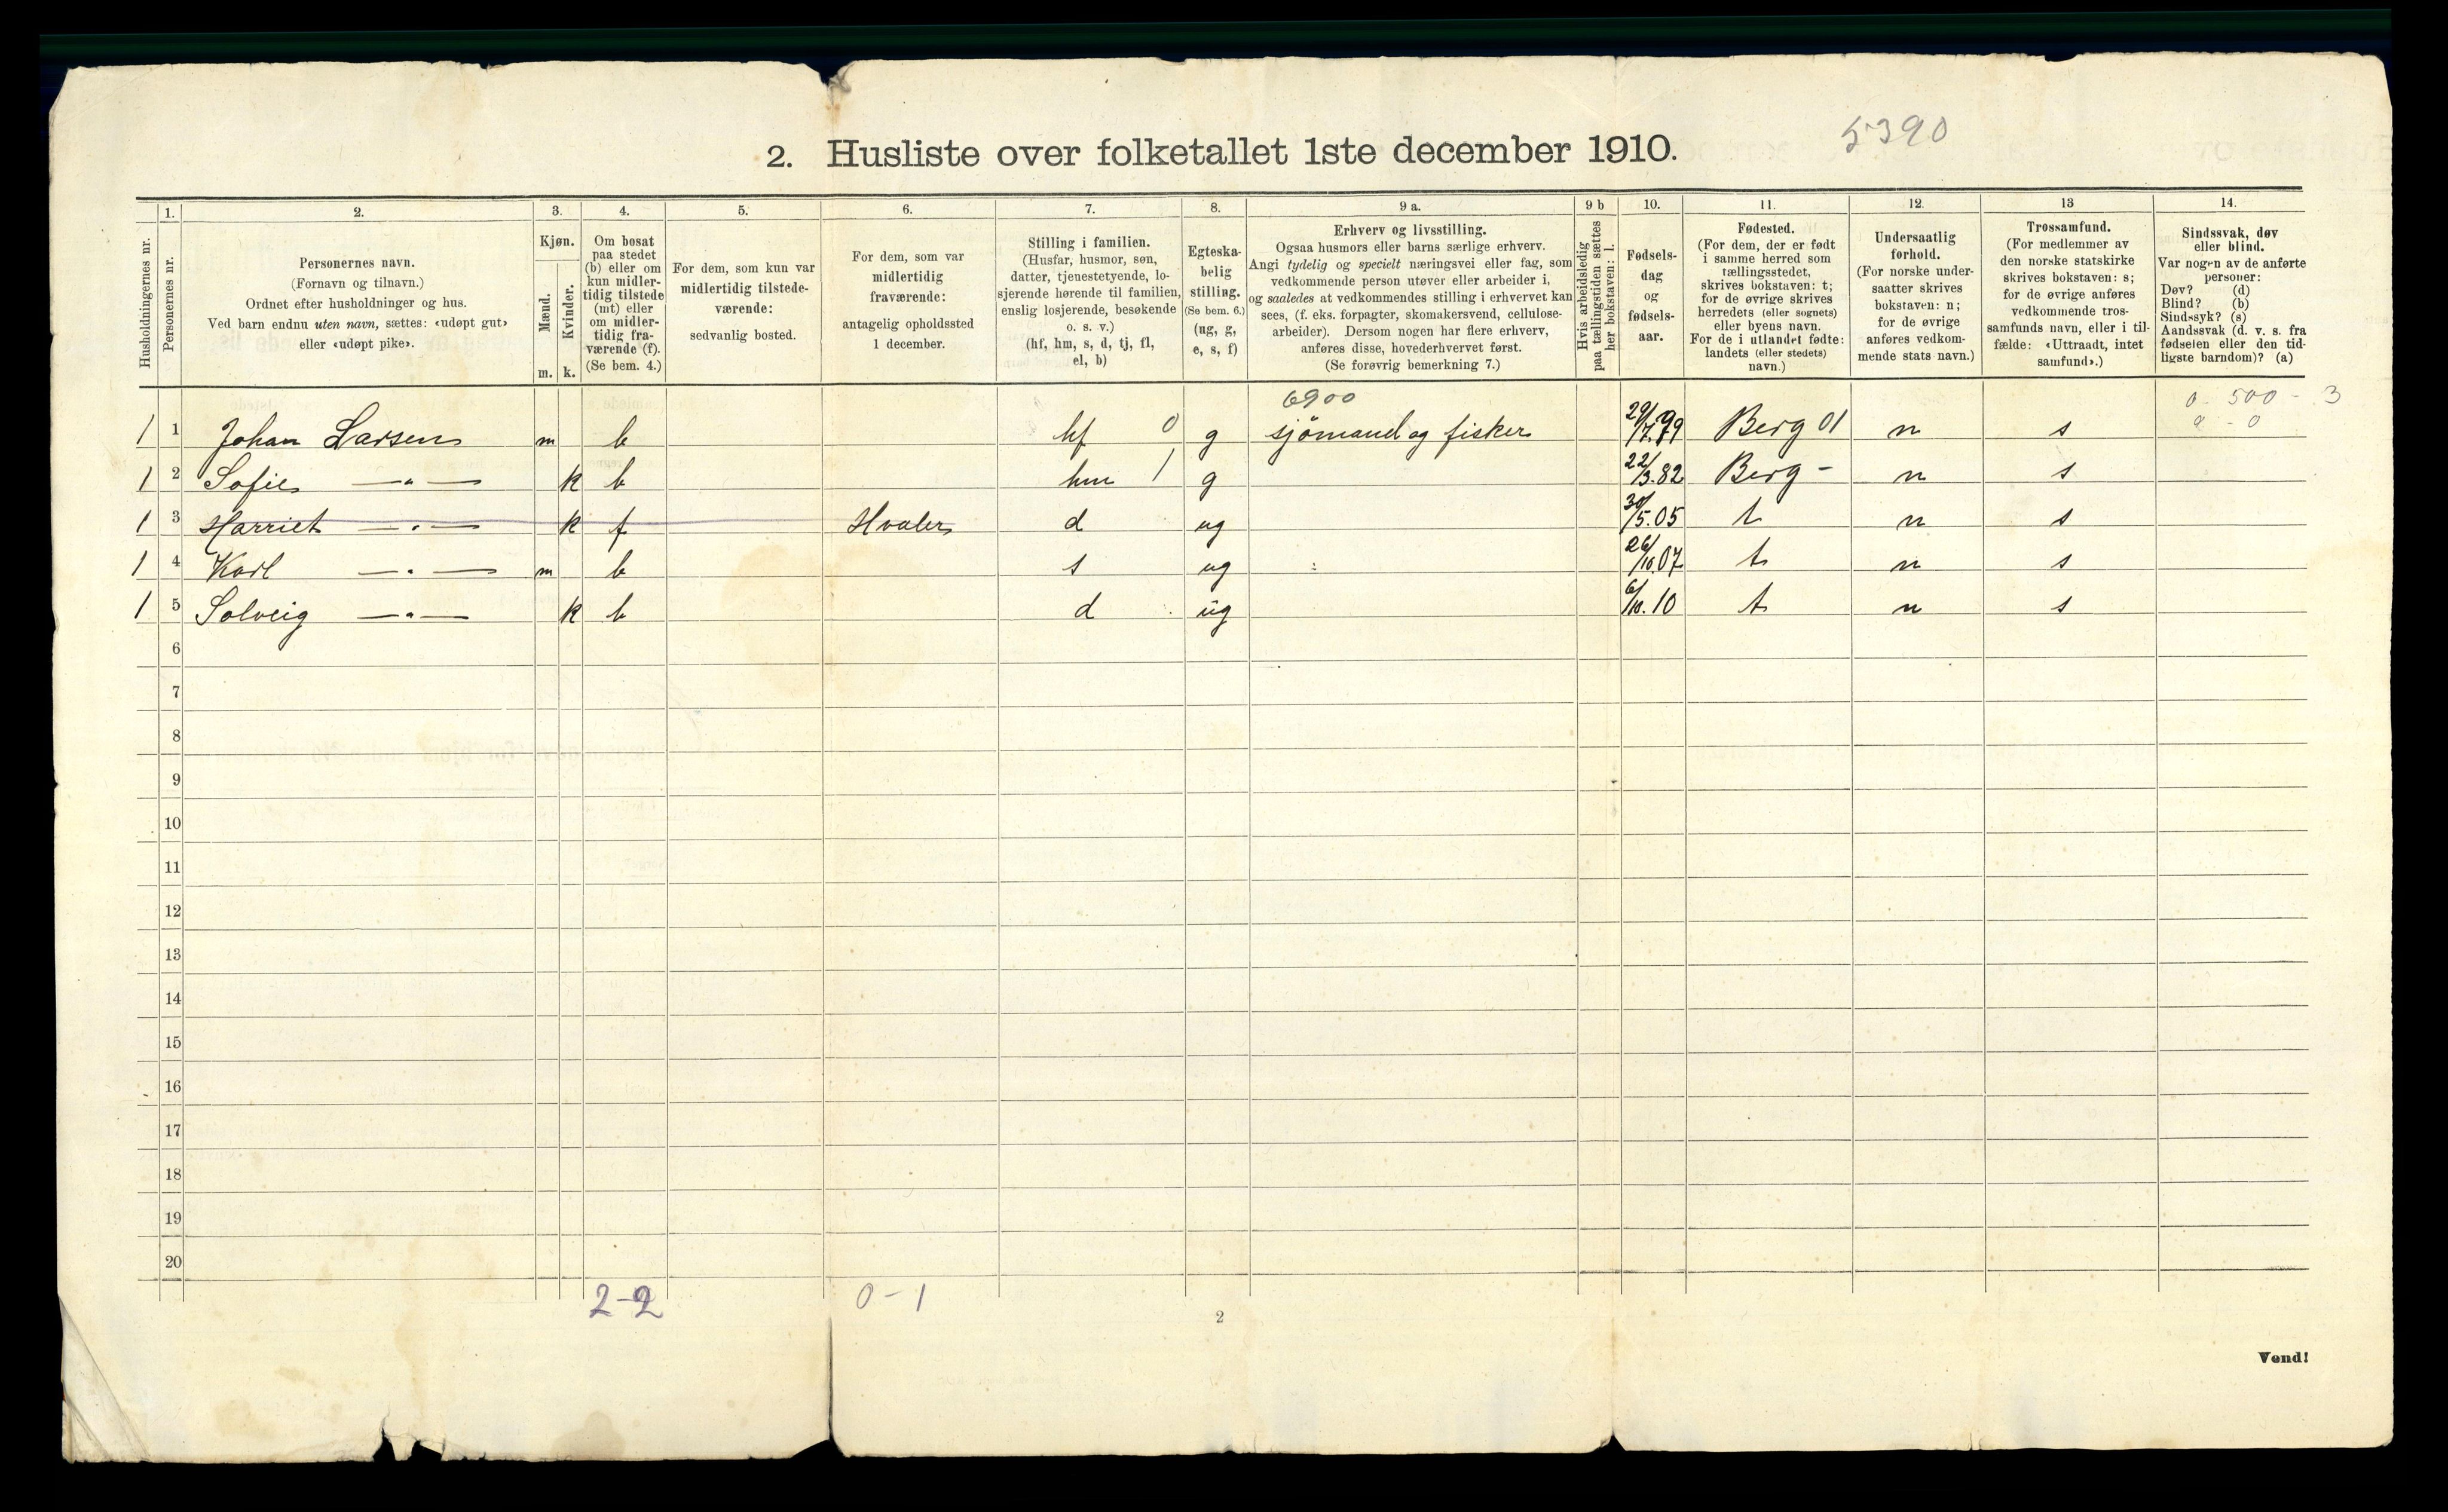 5390
2. Husliste over folketallet 1ste december 1910.
Husholdningernes nr.
1.
Personernes nr.
2.
Personernes navn.
(Fornavn og tilnavn.)
Ordnet efter husholdninger og hus.
Ved barn endnu uten navn, sættes: «udøpt gut»
eller «udøpt pike».
3.
Kjøn.
Mænd.
Kvinder.
m. k.
4.
Om bosat
paa stedet
(b) eller om
kun midler-
tidig tilstede
(mt) eller
om midler-
tidig fra-
værende (f).
(Se bem. 4.)
5.
For dem, som kun var
midlertidig tilstede-
værende:
sedvanlig bosted.
6.
For dem, som var
midlertidig
fraværende:
antagelig opholdssted
1 december.
7.
Stilling i familien.
(Husfar, husmor, søn,
datter, tjenestetyende, lo-
sjerende hørende til familien,
enslig losjerende, besøkende
o. s. v.)
(hf, hm, s, d, tj, fl,
el, b)
8.
Egteska-
belig
stilling.
(Se bem. 6.)
(ug, g,
e, s, f)
9 a.
Erhverv og livsstilling.
Ogsaa husmors eller barns særlige erhverv.
Angi tydelig og specielt næringsvei eller fag, som
vedkommende person utøver eller arbeider i,
og saaledes at vedkommendes stilling i erhvervet kan
sees, (f. eks. forpagter, skomakersvend, cellulose-
arbeider). Dersom nogen har flere erhverv,
anføres disse, hovederhvervet først.
(Se forøvrig bemerkning 7.)
9 b
Hvis arbeidsledig
paa tællingstiden sættes
her bokstaven: l.
10.
Fødsels-
dag
og
fødsels-
aar.
11.
Fødested.
(For dem, der er født
i samme herred som
tællingsstedet,
skrives bokstaven: t;
for de øvrige skrives
herredets (eller sognets)
eller byens navn.
For de i utlandet fødte:
landets (eller stedets)
navn.)
12.
Undersaatlig
forhold.
(For norske under-
saatter skrives
bokstaven: n;
for de øvrige
anføres vedkom-
mende stats navn.)
13
Trossamfund.
(For medlemmer av
den norske statskirke
skrives bokstaven: s;
for de øvrige anføres
vedkommende tros-
samfunds navn, eller i til-
fælde: «Uttraadt, intet
samfund».)
14.
Sindssvak, døv
eller blind.
Var nogen av de anførte
personer:
Døv? (d)
Blind? (b)
Sindssyk? (s)
Aandssvak (d. v. s. fra
fødselen eller den tid-
ligste barndom)? (a)
6900
0 - 500 - 3
0 - 0
1 1 Johan Larsen m b hf 0 g sjömand og fisker 29/7.79 Berg 01 n s
1 2 Sofie —„— k b hm 1 g 22/3.82 Berg - n s
1 3 Harriet —„— k f Hvaler d ug 30/5.05 t n s
1 4 Karl —„— m b s ug 26/10.07 t n s
1 5 Solveig —„— k b d ug 6/10.10 t n s
6
7
8
9
10
11
12
13
14
15
16
17
18
19
20
2-2 0-1
2
Vend!